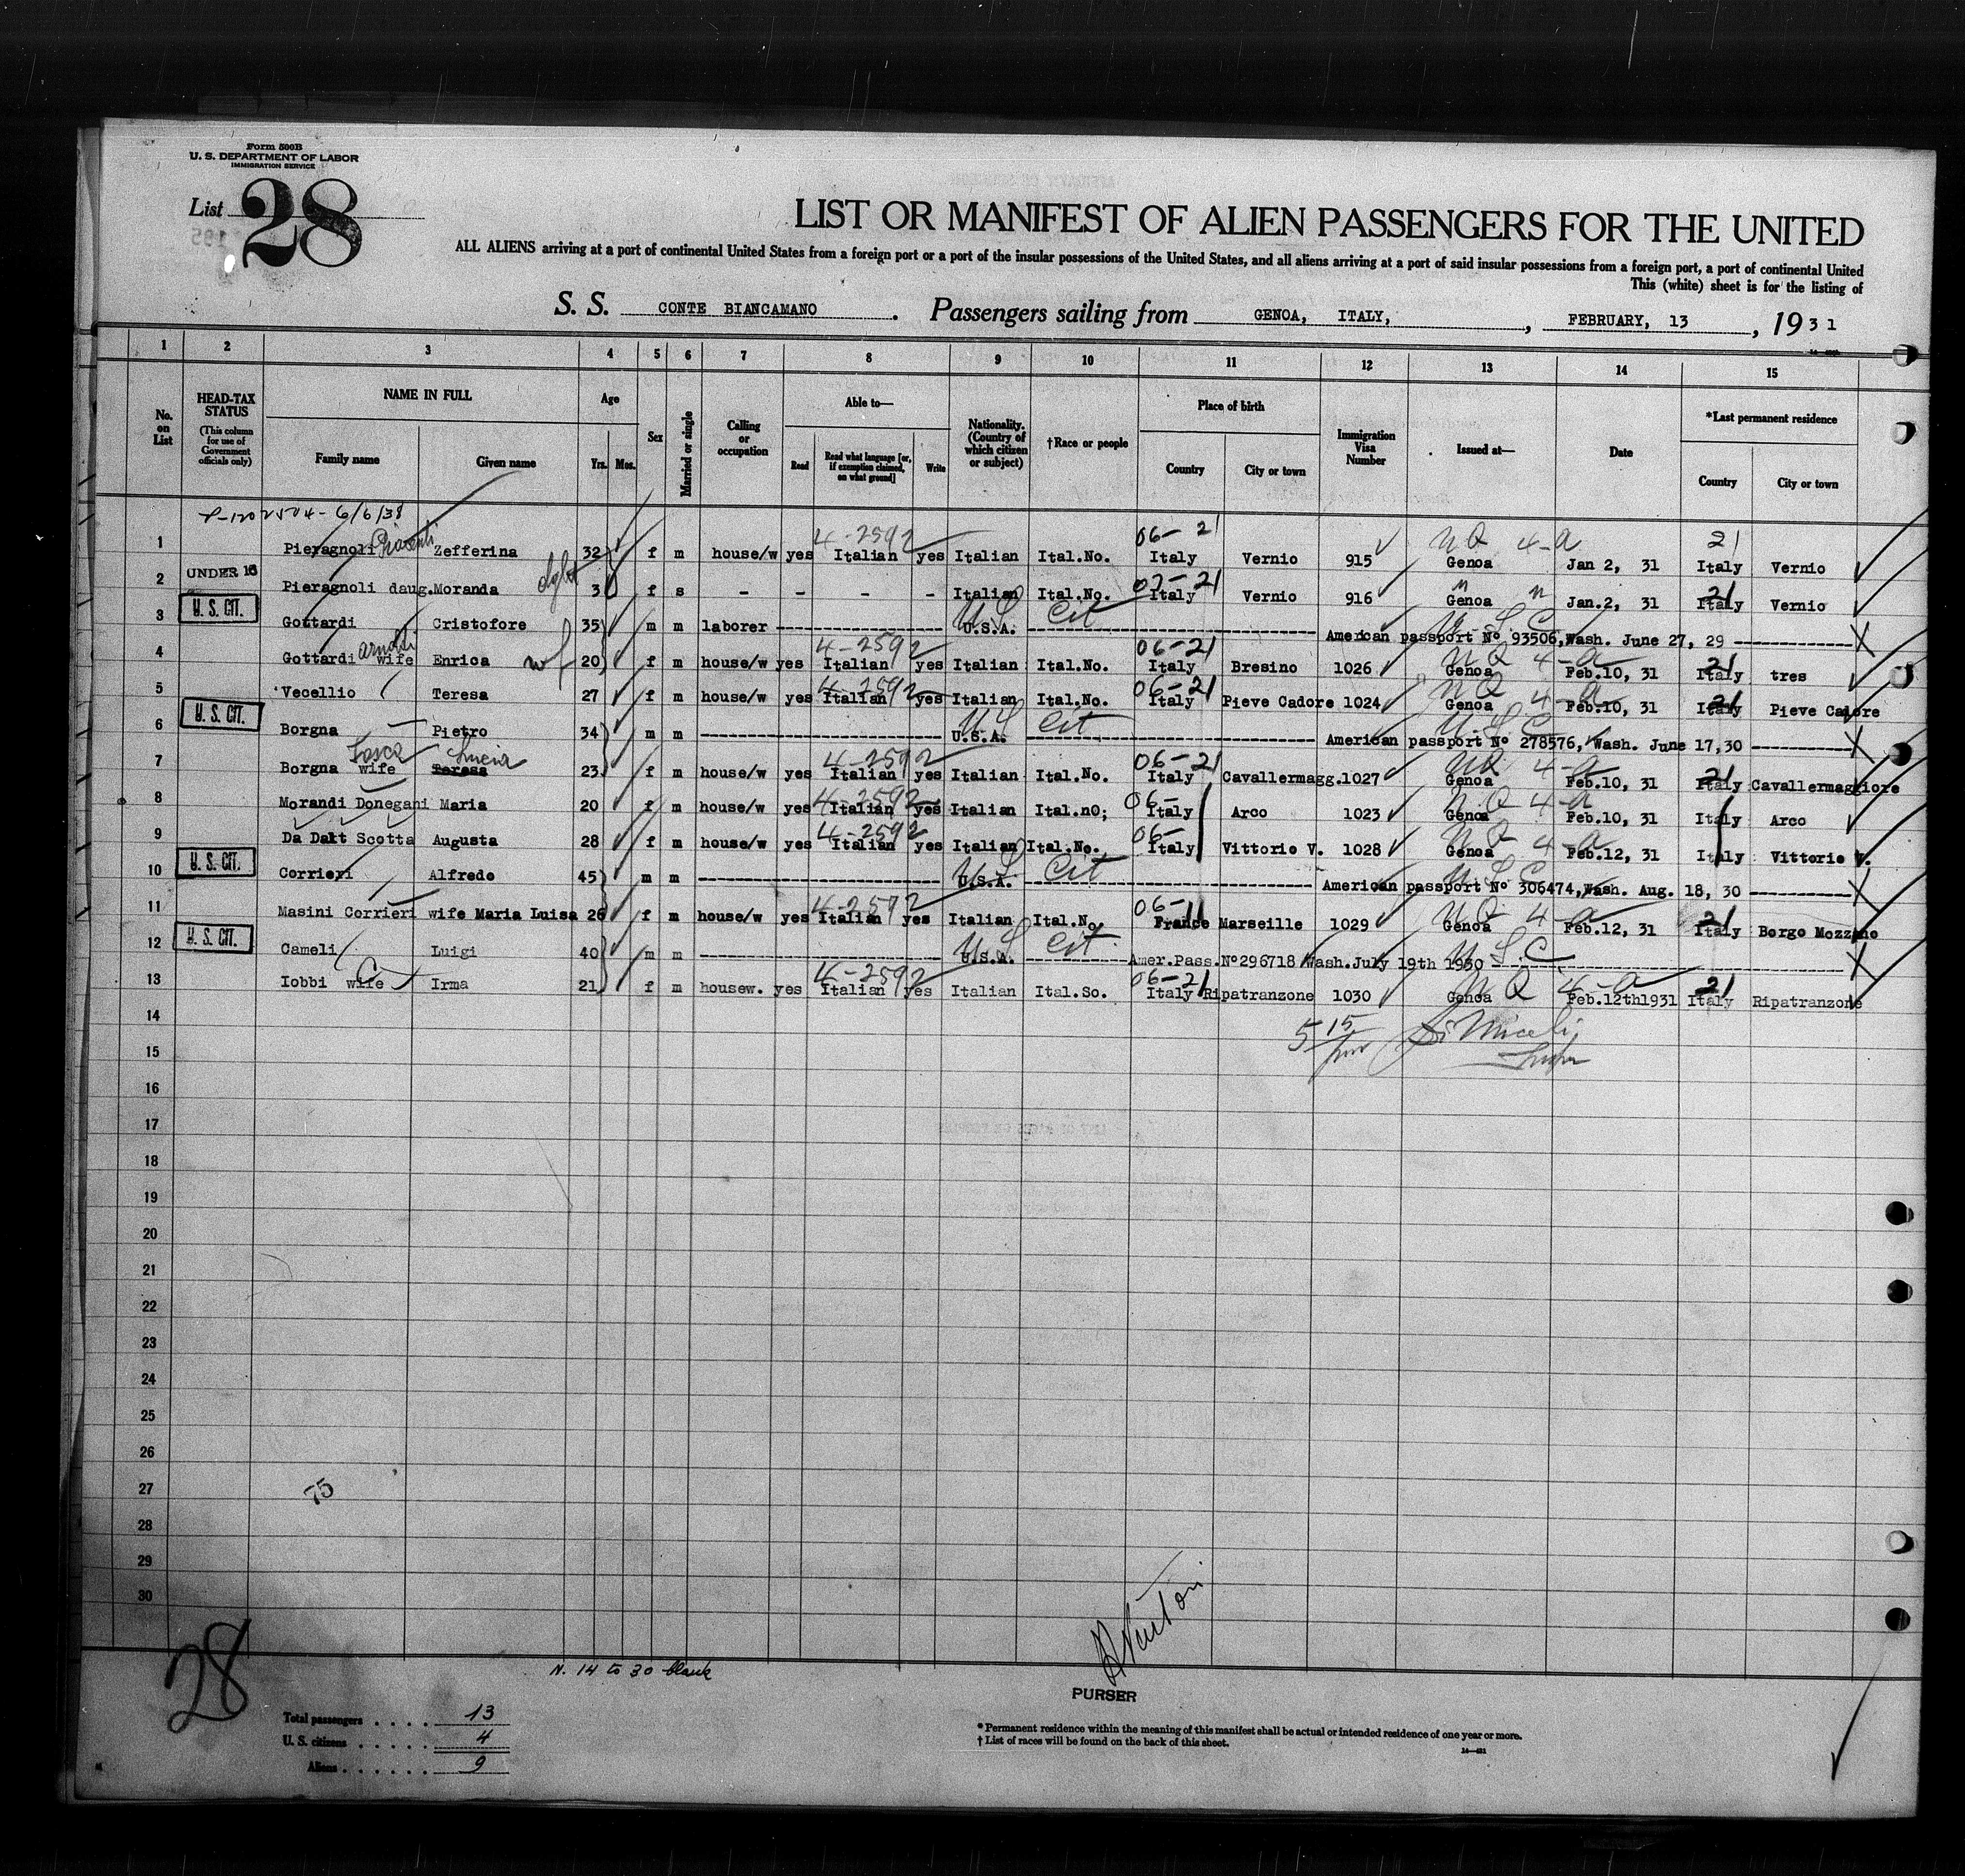 Form 500B
U. S. DEPARTMENT OF LABOR
IMMIGRATION SERVICE
List 28
LIST OR MANIFEST OF ALIEN PASSENGERS FOR THE UNITED
ALL ALIENS arriving at a port of continental United States from a foreign port or a port of the insular possessions of the United States, and all aliens arriving at a port of said insular possessions from a foreign port, a port of continental United
This (white) sheet is for the listing of
S. S. CONTE BIANCAMANO . Passengers sailing from GENOA, ITALY, , FEBRUARY, 13 , 1931
1 2 3 4 5 6 7 8 9 10 11 12 13 14 15
No. on List
HEAD-TAX STATUS (This column for use of Government officials only)
NAME IN FULL Family name Given name
Age Yrs. Mos.
Sex
Married or single
Calling or occupation
Able to— Read Read what language [or, if exemption claimed, on what ground] Write
Nationality. (Country of which citizen or subject)
†Race or people
Place of birth Country City or town
Immigration Visa Number
Issued at—
Date
*Last permanent residence Country City or town
6/6/38
1 Pieragnoli Zefferina 32 f m house/w yes 4-2592 Italian yes Italian Ital.No. 06-21 Italy Vernio 915 NQ 4-a Genoa Jan 2, 31 21 Italy Vernio
2 UNDER 16 Pieragnoli daug. Moranda 3 f s - - - - Italian Ital.No. 07-21 Italy Vernio 916 Genoa Jan.2, 31 21 Italy Vernio
3 U. S. CIT. Gottardi Cristofore 35 m m laborer U.S.A. US Cit American passport Nº 93506, Wash. June 27, 29 U.S.C X
4 Gottardi wife Arnoldi Enrica wf 20 f m house/w yes 4-2592 Italian yes Italian Ital.No. 06-21 Italy Bresino 1026 NQ 4-a Genoa Feb.10, 31 21 Italy tres
5 Vecellio Teresa 27 f m house/w yes 4-2592 Italian yes Italian Ital.No. 06-21 Italy Pieve Cadore 1024 NQ 4-a Genoa Feb.10, 31 21 Italy Pieve Cadore
6 U. S. CIT. Borgna Pietro 34 m m U.S.A. US Cit American passport Nº 278576, Wash. June 17,30 U.S.C X
7 Borgna wife Teresa Lucia 23 f m house/w yes 4-2592 Italian yes Italian Ital.No. 06-21 Italy Cavallermagg. 1027 NQ 4-a Genoa Feb.10, 31 21 Italy Cavallermaggiore
8 Morandi Donegani Maria 20 f m house/w yes 4-2592 Italian yes Italian Ital.nO; 06- Italy Arco 1023 NQ 4-a Genoa Feb.10, 31 Italy Arco
9 Da Dalt Scotta Augusta 28 f m house/w yes 4-2592 Italian yes Italian Ital.No. 06- Italy Vittorio V. 1028 NQ 4-a Genoa Feb.12, 31 Italy Vittorio V.
10 U. S. CIT. Corrieri Alfredo 45 m m U.S.A. US Cit American passport Nº 306474, Wash. Aug. 18, 30 U.S.C X
11 Masini Corrieri wife Maria Luisa 26 f m house/w yes 4-2592 Italian yes Italian Ital.No 06-11 France Marseille 1029 NQ 4-a Genoa Feb.12, 31 21 Italy Borgo Mozzano
12 U. S. CIT. Cameli Luigi 40 m m U.S.A. US Cit Amer.Pass.Nº296718 Wash.July 19th 1930 U.S.C X
13 Iobbi wife C Irma 21 f m housew. yes 4-2592 Italian yes Italian Ital.So. 06-21 Italy Ripatranzone 1030 NQ 4-a Genoa Feb.12th1931 21 Italy Ripatranzone
14
15
16
17
18
19
20
21
22
23
24
25
26
27
28
29
30
75
28
N. 14 to 30 blank
PURSER
Total passengers . . . . 13
U. S. citizens . . . . . 4
Aliens . . . . . . 9
* Permanent residence within the meaning of this manifest shall be actual or intended residence of one year or more.
† List of races will be found on the back of this sheet.